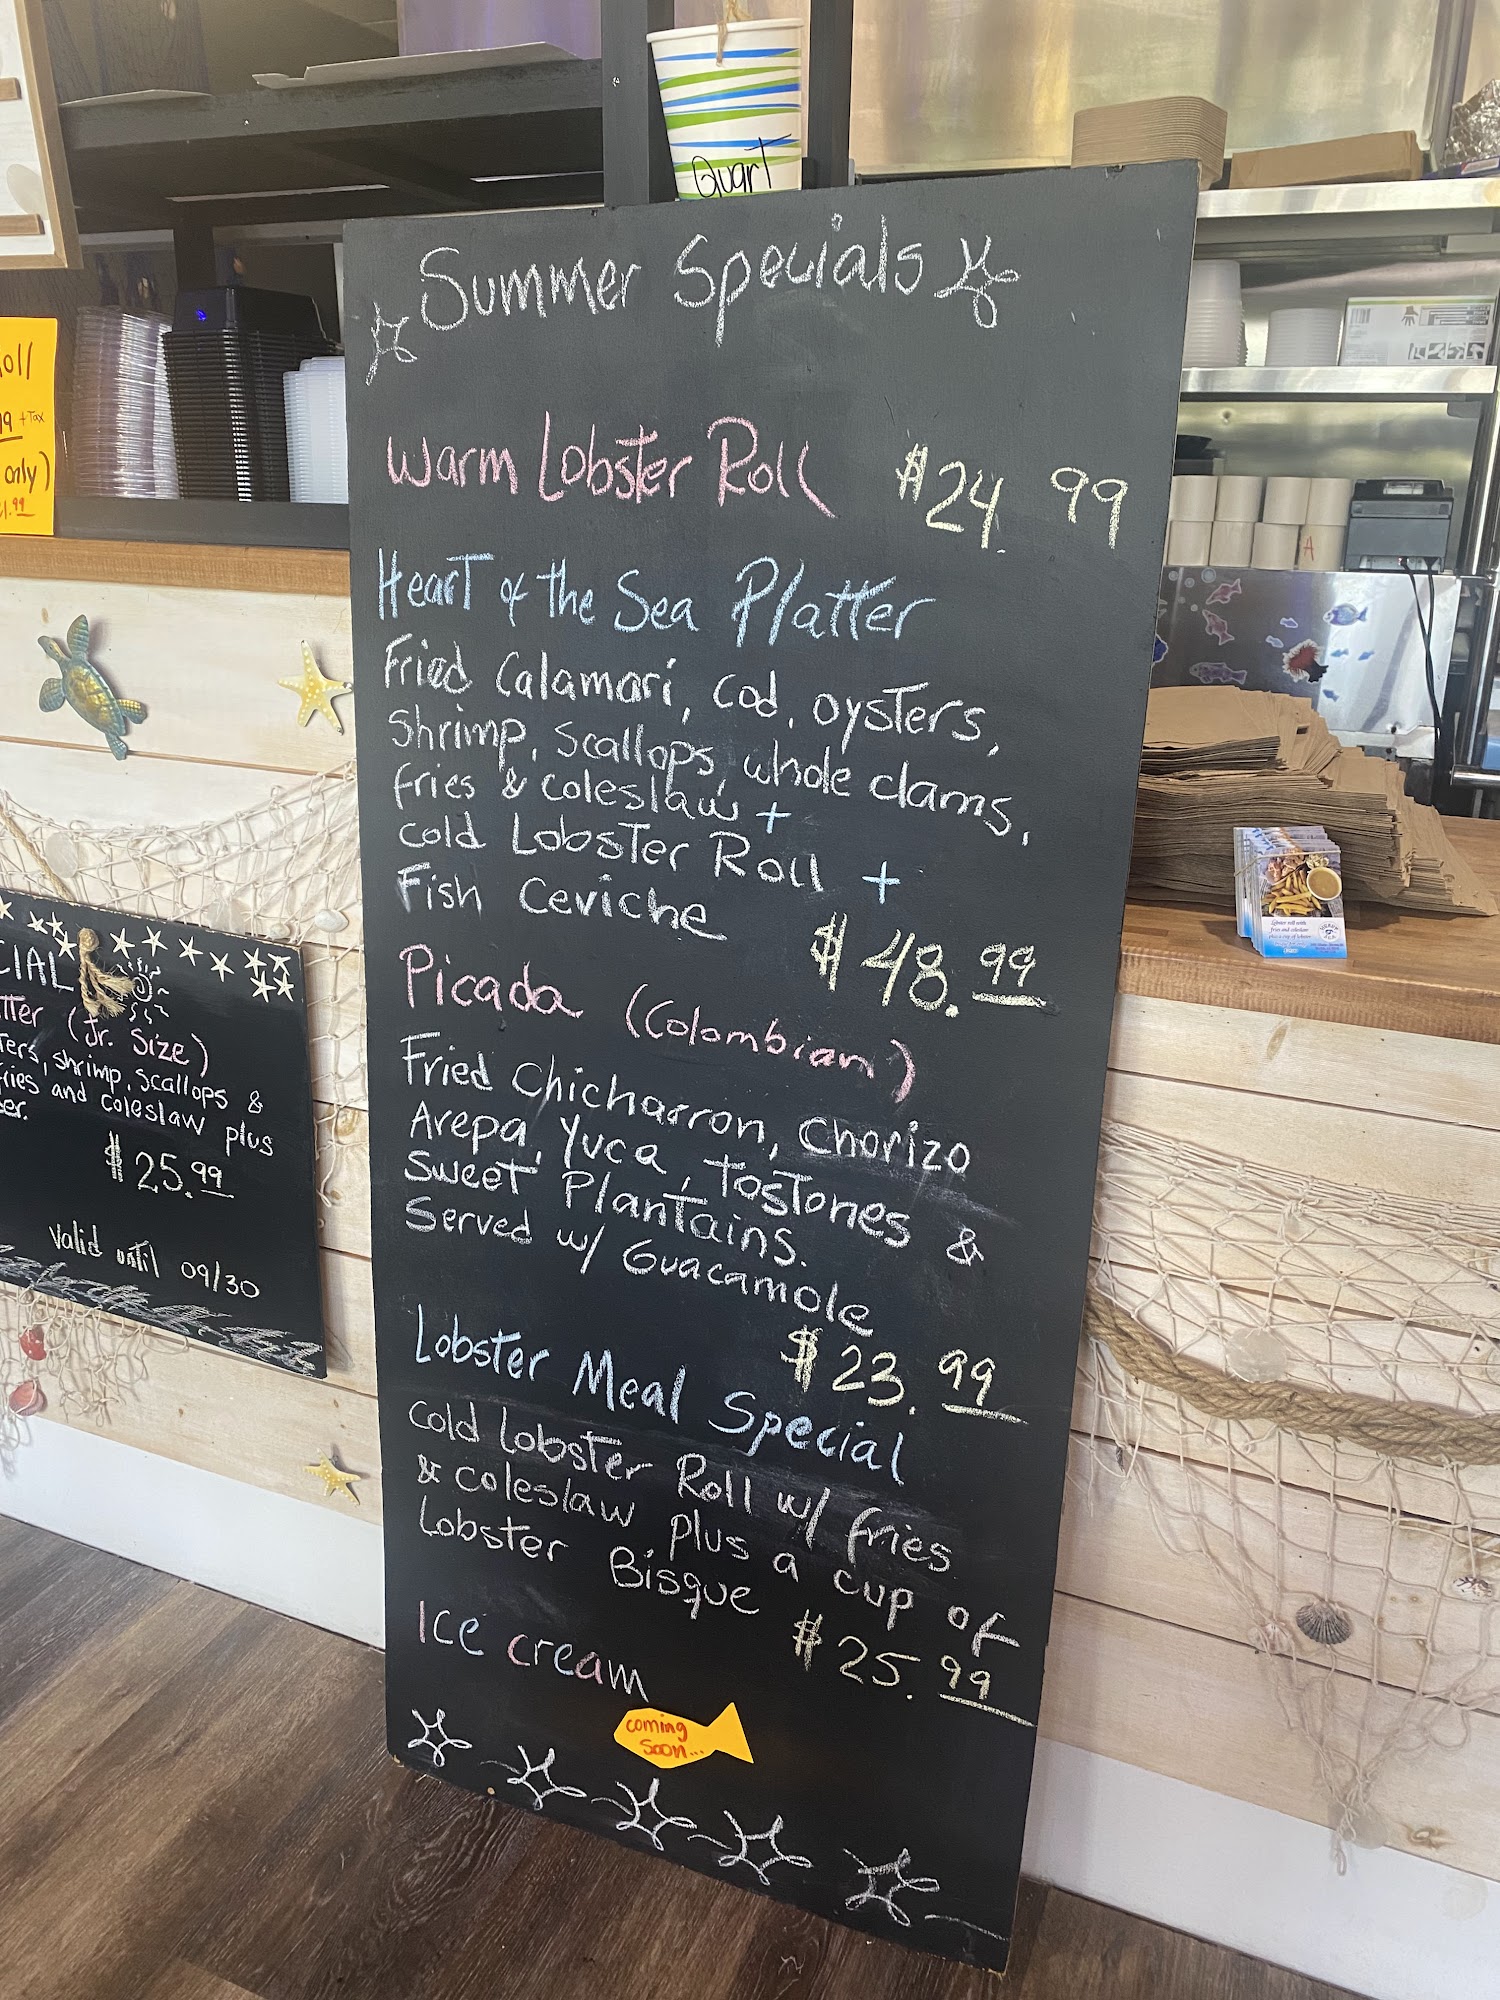 Quart
Summer Specials
Warm Lobster Roll $24.99
Heart of the Sea Platter
Fried Calamari, Cod, oysters,
Shrimp, Scallops, whole clams,
fries & coleslaw +
Cold Lobster Roll +
Fish Ceviche $48.99
Picada (Colombian)
Fried Chicharron, Chorizo
Arepa, Yuca, tostones &
Sweet Plantains.
Served w/ Guacamole
$23.99
Lobster Meal Special
Cold Lobster Roll w/ fries
& coleslaw plus a cup of
Lobster Bisque $25.99
Ice cream
coming
soon...
+Tax
only)
(Jr. Size)
shrimp, scallops &
and coleslaw plus
$25.99
Valid until 09/30
A
Lobster roll with
fries and coleslaw
plus a cup of lobster